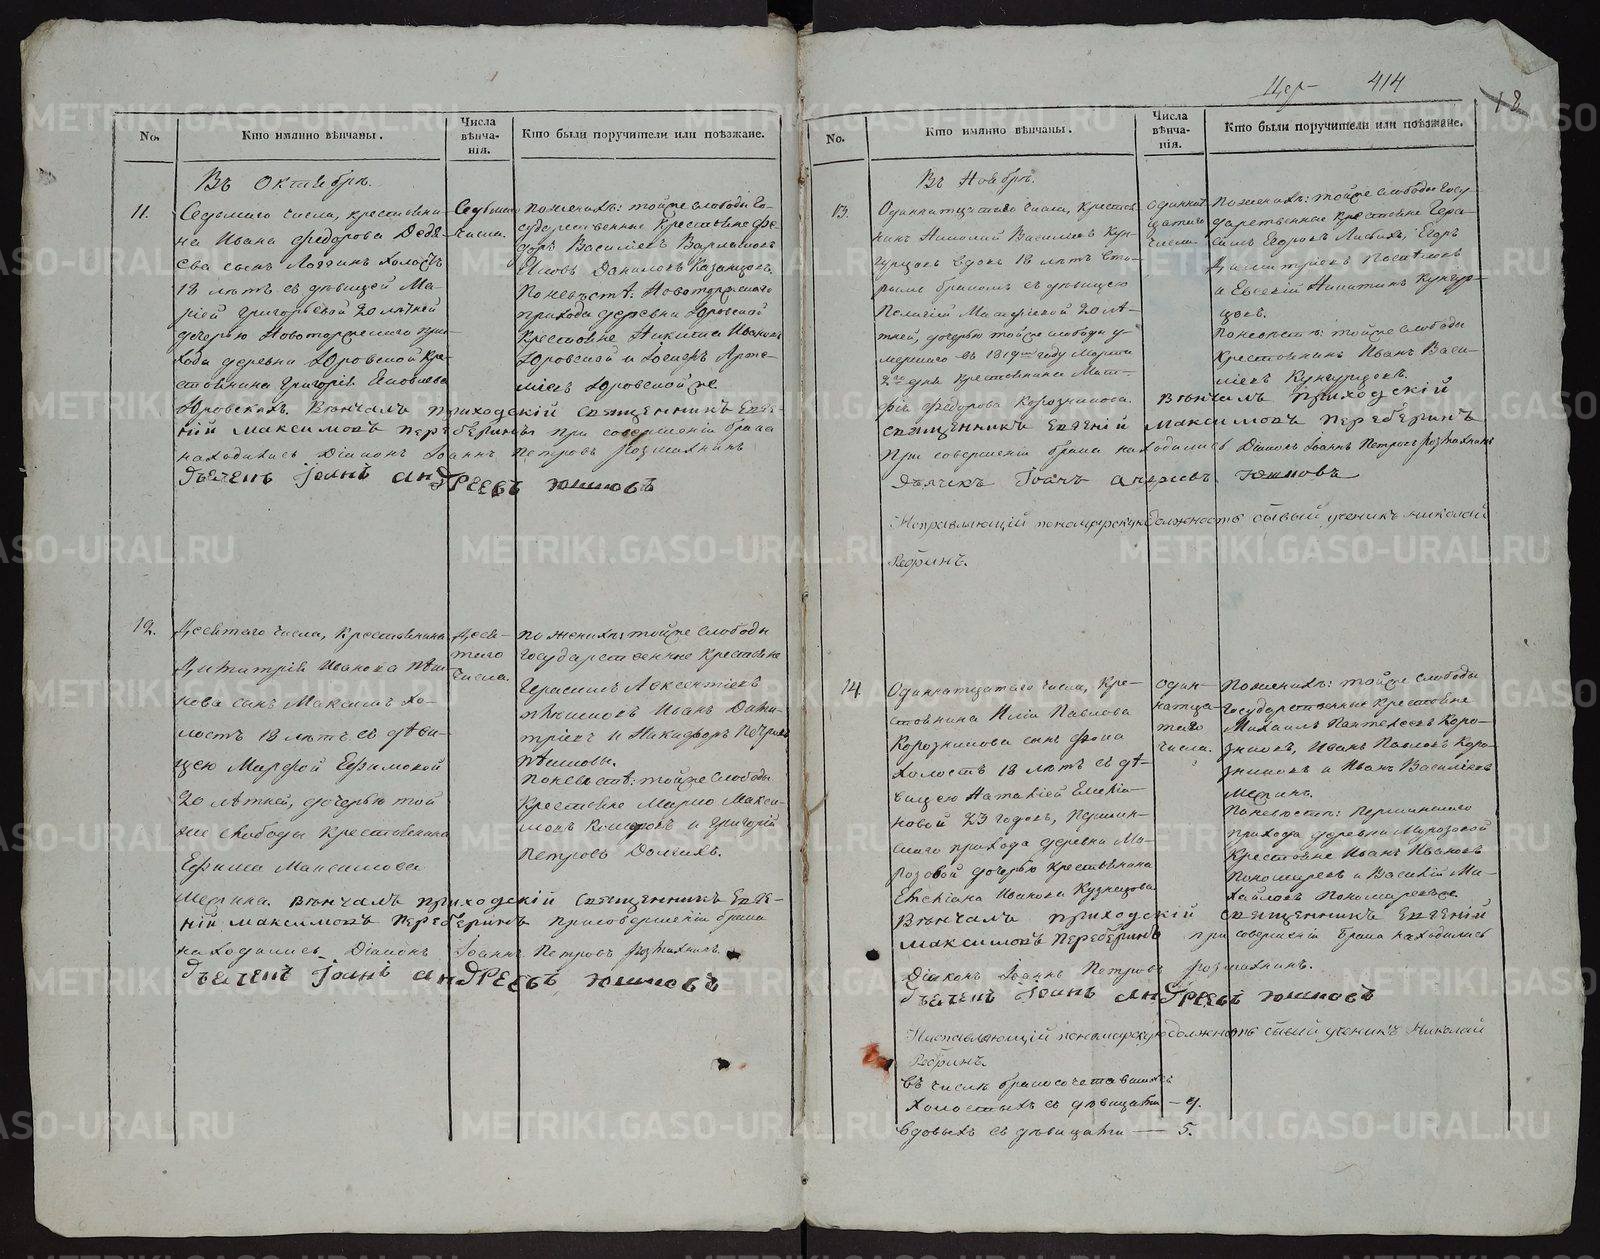 No.
Кто имянно вѣнчаны.
Числа вѣнча-
нія.
Кто были поручители или поѣзжане.
Въ Октябрѣ.
11.
Седьмаго числа, крестьяни-
на Ивана Федорова
сынъ холостъ
18 лѣтъ съ дѣвицей Ма-
рѣей Григорьевой 20 лѣтней
дочерью Новоторжскаго при-
хода деревни Юровской кре-
стьянина Григорія Яковлева
Юровскихъ. Вѣнчалъ приходскій священникъ Евге-
ній Максимовъ Переберинъ при совершеніи брака
находились Діаконъ Іоаннъ Петровъ
Дьячекъ Іоаннъ Андреевъ Юшковъ
Седьмаго
числа.
По женихѣ: тойже слободы Го-
сударственные крестьяне Фе-
доръ Васильевъ Варлаковъ
Яковъ Даниловъ Казанцовъ.
По невѣстѣ: Новоторжскаго
прихода деревни Юровской
крестьяне Никита Ивановъ
Юровской и Артe-
мьевъ Юровской же
12.
Десятаго числа, крестьянина
Димитрія Иванова
сынъ Максимъ хо-
лостъ 18 лѣтъ съ дѣви-
цею Марфой Ефимовой
20 лѣтней, дочерью той
же слободы крестьянина
Ефима Максимова
Мерзина. Вѣнчалъ приходскій священникъ Евге-
ній Максимовъ Переберинъ при совершеніи брака
находились Діаконъ Іоаннъ Петровъ
Дьячекъ Іоаннъ Андреевъ Юшковъ
Деся-
таго
числа.
По женихѣ: тойже слободы
Государственные крестьяне
Герасимъ Авксентьевъ
Иванъ Дими-
тріевъ и Никифоръ Петровъ
По невѣстѣ: тойже слободы
крестьяне Макси-
мовъ и Григорій
Петровъ Долгихъ.
414
18
No.
Кто имянно вѣнчаны.
Числа вѣнча-
нія.
Кто были поручители или поѣзжане.
Въ Ноябрѣ.
13.
Одиннатцатаго числа, кресть-
нинъ Николай Васильевъ Кун-
гурцовъ вдовъ 18 лѣтъ вто-
рымъ бракомъ съ дѣвицею
Пелагіей Матфеевой 20 лѣ-
тней, дочерью тойже слободы у-
мершаго въ 1819мъ году Марта
2го дня крестьянина Мат-
фѣя Федорова Корозникова.
Вѣнчалъ приходскій
священникъ Евгеній Максимовъ Переберинъ
при совершеніи брака находились Діаконъ Іоаннъ Петровъ
Дьячекъ Іоаннъ Андреевъ Юшковъ
Исправляющій пономарскую должность бывый ученикъ Николай
Ребринъ.
Одиннат-
цатаго
числа.
По женихѣ: тойже слободы Госу-
дарственные крестьяне Гера-
симъ Егоровъ Егоръ
Димитріевъ
и Евсевій Никитинъ Кунгур-
цовъ.
По невѣстѣ: тойже слободы
крестьянинъ Иванъ Васи-
льевъ Кунгурцовъ.
14.
Одиннатцатаго числа, кре-
стьянина Иліи Павлова
Корозникова сынъ Фома
холостъ 18 лѣтъ съ дѣ-
вицею Наталіей Емельа-
новой 23 годовъ, Першин-
скаго прихода деревни Мо-
розовой дочерью крестьянина
Иванова Кузнецова
Вѣнчалъ приходскій священникъ Евгеній
Максимовъ Переберинъ при совершеніи брака находились
Діаконъ Іоаннъ Петровъ
Дьячекъ Іоаннъ Андреевъ Юшковъ
Исправляющій пономарскую должность бывый ученикъ Николай
Ребринъ.
Въ числѣ бракосочетавшихся
холостыхъ съ дѣвицами — 9.
вдовыхъ съ дѣвицами — 5.
Один-
натца-
таго
числа.
По женихѣ: тойже слободы
Государственные крестьяне
Михаилъ Пантелеевъ Коро-
зниковъ, Иванъ Павловъ Коро-
зниковъ и Иванъ Васильевъ
Мерзинъ.
По невѣстѣ: Першинскаго
прихода деревни Морозовой
крестьяне Иванъ Ивановъ
Пономаревъ и Василій Ми-
хайловъ Пономаревъ же
METRIKI.GASO-URAL.RU